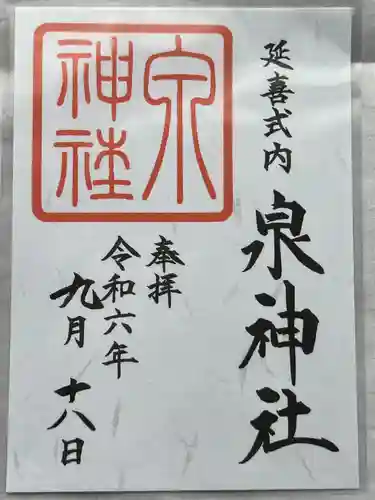 延喜式内
泉神社
奉拝
令和六年
九月十八日
泉
神社